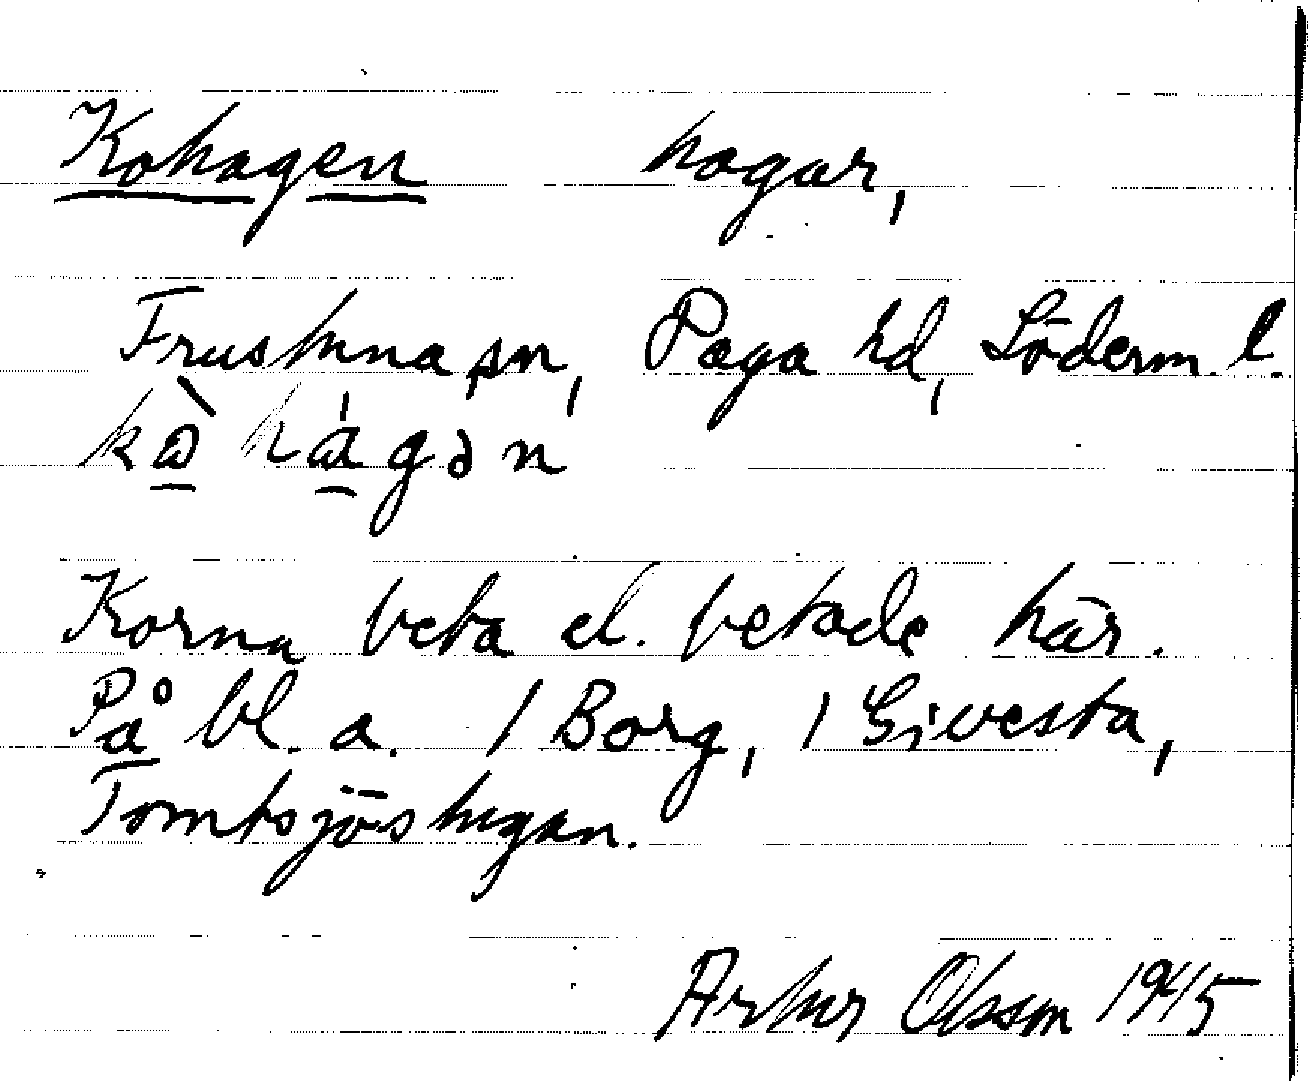 Kohagen hagar,
Frustuna sn, Daga hd, Söderm. l.
kò hágən
Korna beta el. betade här.
På bl. a. 1 Borg, 1 Sivesta,
Tomtsjöstugan.
Artur Olsson 1945